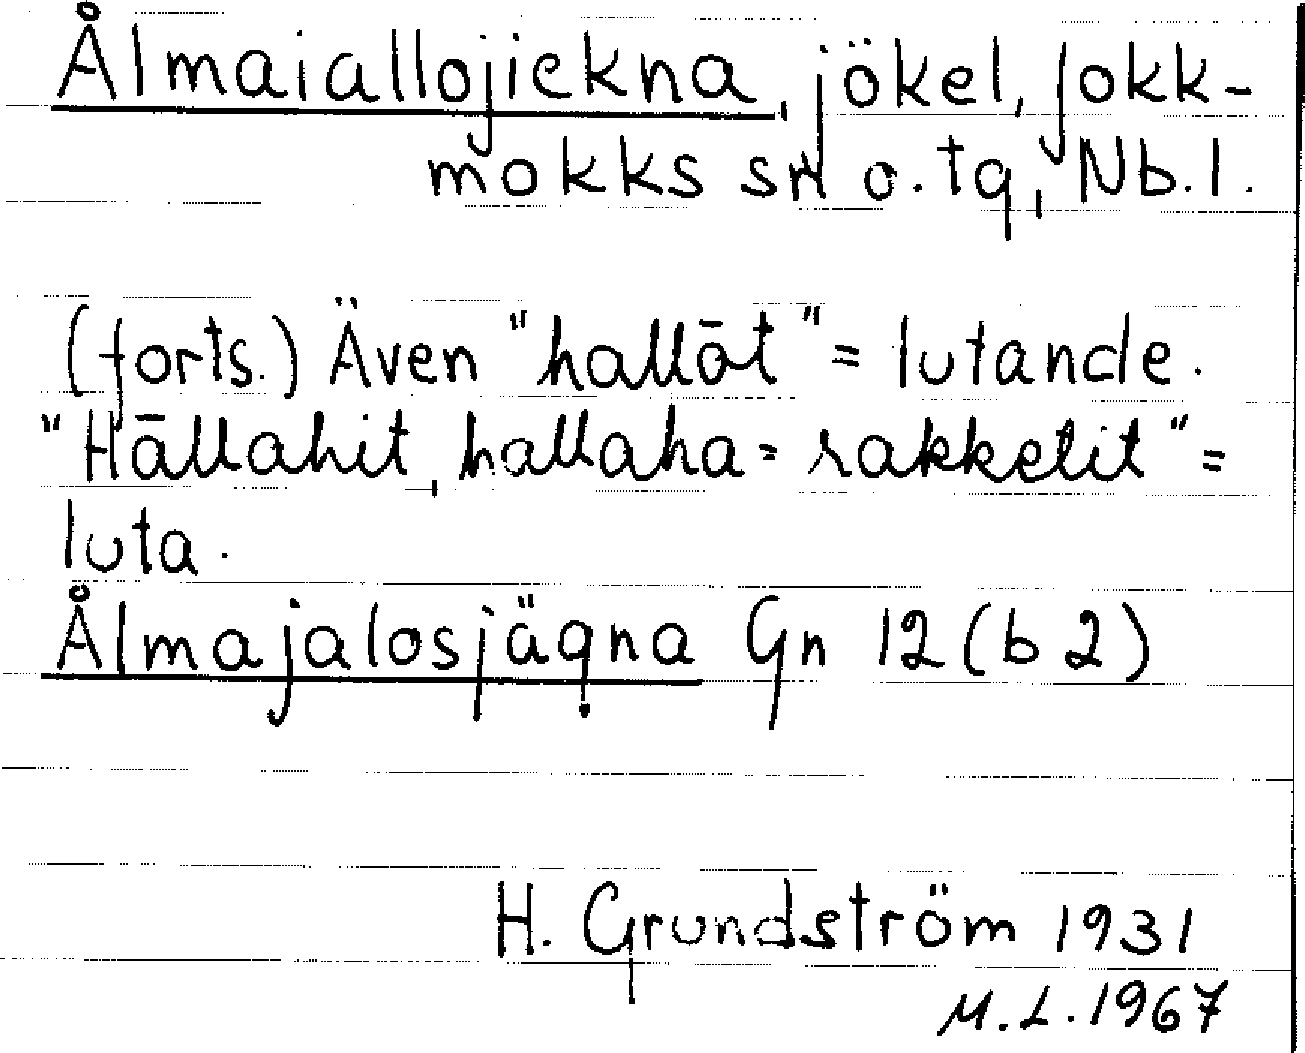 Ålmaiallojiekna, jökel, Jokk-
mokks sn o. tg, Nb. l.
(forts.) Även "hallōt" = lutande.
"Hāllahit, hallaha = rakkelit" =
luta.
Ålmajalosjägna Gn 12 (b 2)
H. Grundström 1931
M. L. 1967